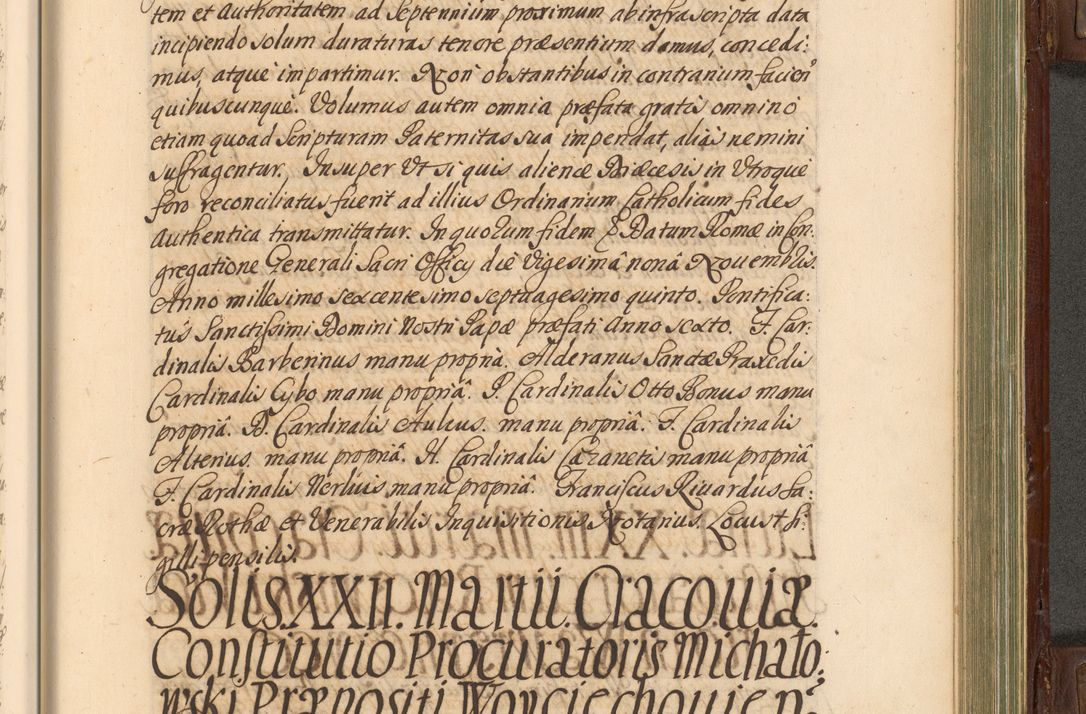 tem et Authoritatem ad Septennium proximum ab infrascripta data
incipiendo solum duraturas tenore præsentium damus, concedi:
mus, atque impartimur. Non obstantibus in contrarium facien̄
quibuscunque. Volumus autem omnia præfata gratis omnino
etiam quoad Scripturam Paternitas sua impendat, alias nemini
suffragentur., Insuper Vt si quis alienæ Diæcesis in Vtroque
foro reconciliatus fuerit ad illius Ordinarium Catholicum fides
Authentica transmittatur. In quorum fidem & Datum Romæ in Con:
gregatione Generali Sacri Officy die Vigesimâ nonâ Nouembris.
Anno millesimo sexcentesimo septuagesimo quinto. Pontifica:
tus Sanctissimi Domini Nostri Papæ præfati Anno sexto. F. Car:
dinalis Barberinus manu propria. Alderanus Sanctæ Praxedis
Cardinalis Cybo manu propriâ. P. Cardinalis Otto Bonus manu
propriâ. D. Cardinalis Auleus. manu propriâ. F. Cardinalis
Alterius. manu propriâ. H. Cardinalis Cazanetis manu propriâ
F. Cardinalis Nerlius manu propriâ. Franciscus Riuardus Sa:
cræ Rothæ et Venerabilis Inquisitionis Notarius. Locus + Si:
gilli pensilis.
Solis. XXII. Martii. Cracouiæ.
Constitutio Procuratoris Michało:
wski Præpositi Woyciechouien̄